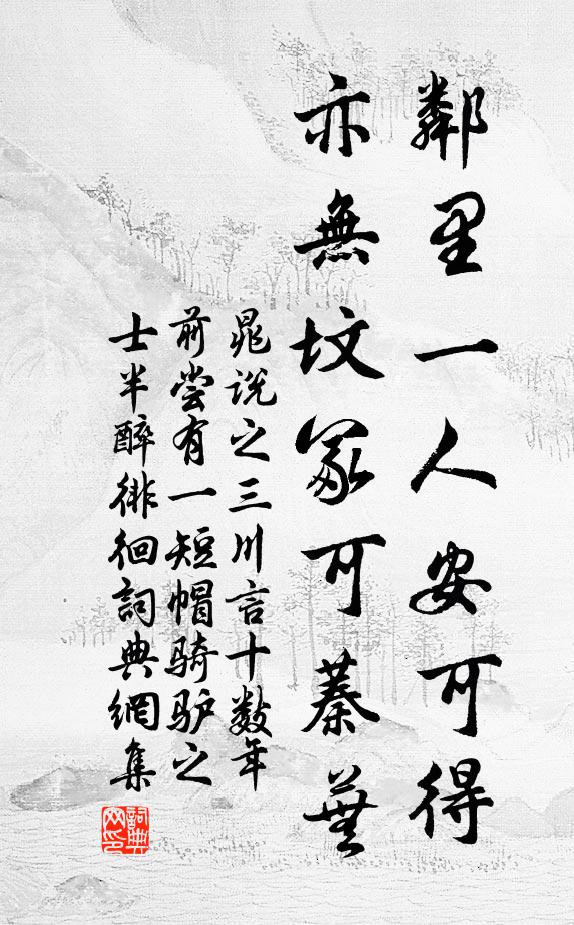 鄰里一人安可得
亦無坟冢可蓁蕪
晁说之三川言十数年
前尝有一短帽骑驴之
士半醉徘徊詞典網集
詞典
网印